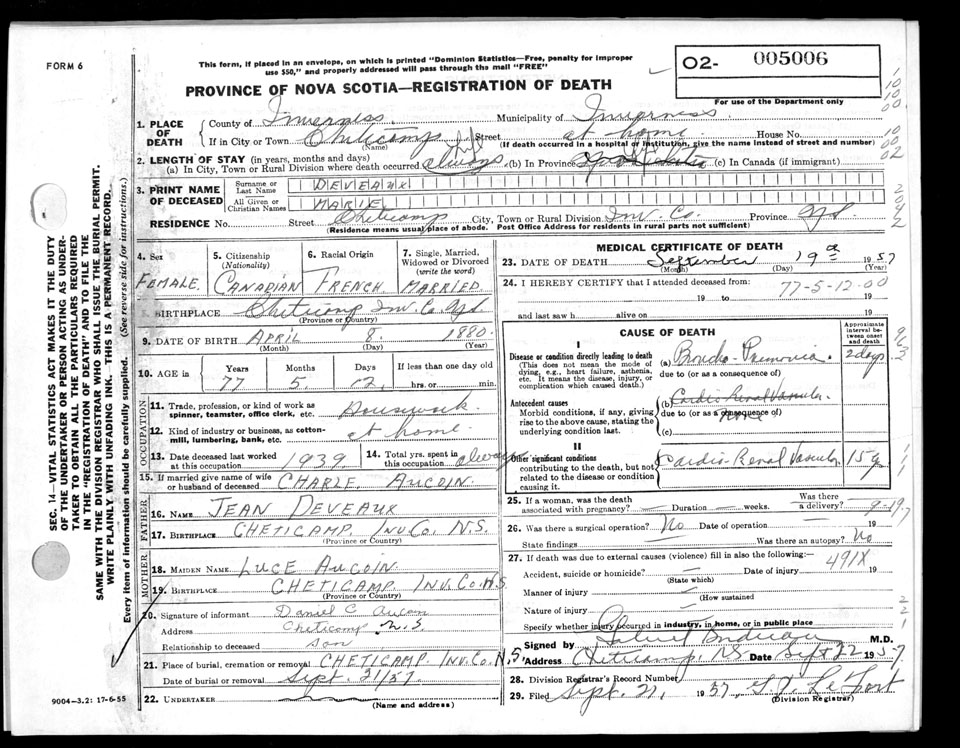 FORM 6
This form, if placed in an envelope, on which is printed "Dominion Statistics—Free, penalty for improper
use $50," and properly addressed will pass through the mail "FREE"
02- 005006
For use of the Department only
PROVINCE OF NOVA SCOTIA—REGISTRATION OF DEATH
1. PLACE OF DEATH
County of Inverness. Municipality of Inverness.
If in City or Town Cheticamp (Name) Street at home. House No.
(If death occurred in a hospital or institution, give the name instead of street and number)
2. LENGTH OF STAY (in years, months and days)
(a) In City, Town or Rural Division where death occurred always (b) In Province (c) In Canada (if immigrant)
3. PRINT NAME OF DECEASED
Surname or Last Name DEVEAUX
All Given or Christian Names MARIE
RESIDENCE No. Street Cheticamp City, Town or Rural Division Inv. Co. Province N.S.
(Residence means usual place of abode. Post Office Address for residents in rural parts not sufficient)
4. Sex FEMALE.
5. Citizenship (Nationality) CANADIAN
6. Racial Origin FRENCH
7. Single, Married, Widowed or Divorced (write the word) MARRIED
8. BIRTHPLACE Cheticamp Inv. Co. N.S.
(Province or Country)
9. DATE OF BIRTH APRIL 8. 1880.
(Month) (Day) (Year)
10. AGE in Years 77 Months 5 Days 12. If less than one day old hrs. or min.
OCCUPATION
11. Trade, profession, or kind of work as spinner, teamster, office clerk, etc. Housework.
12. Kind of industry or business, as cotton-mill, lumbering, bank, etc. at home.
13. Date deceased last worked at this occupation 1939
14. Total yrs. spent in this occupation always
15. If married give name of wife or husband of deceased CHARLE AUCOIN.
FATHER
16. NAME JEAN DEVEAUX
17. BIRTHPLACE CHETICAMP. INV. CO. N.S.
(Province or Country)
MOTHER
18. MAIDEN NAME LUCE AUCOIN.
19. BIRTHPLACE CHETICAMP. INV. CO. N.S.
(Province or Country)
20. Signature of informant Daniel C Aucoin
Address Cheticamp N.S.
Relationship to deceased son
21. Place of burial, cremation or removal CHETICAMP. INV. CO. N.S.
Date of burial or removal Sept. 21/57.
22. UNDERTAKER
(Name and address)
MEDICAL CERTIFICATE OF DEATH
23. DATE OF DEATH September 19th 1957
(Month) (Day) (Year)
24. I HEREBY CERTIFY that I attended deceased from:
77-5-12-00
19 to 19
and last saw h alive on 19
CAUSE OF DEATH
Approximate interval between onset and death
I
Disease or condition directly leading to death (a) Broncho-Pneumonia. 2 days
(This does not mean the mode of dying, e.g., heart failure, asthenia, etc. It means the disease, injury, or complication which caused death.)
due to (or as a consequence of)
Antecedent causes (b) Cardio Renal Vascular
Morbid conditions, if any, giving rise to the above cause, stating the underlying condition last.
due to (or as a consequence of)
none
(c)
II
Other significant conditions Cardio-Renal Vascular 15 y
contributing to the death, but not related to the disease or condition causing it.
25. If a woman, was the death associated with pregnancy? — Duration — weeks. Was there a delivery?
9-19-7
26. Was there a surgical operation? No Date of operation — 19
State findings Was there an autopsy? No
27. If death was due to external causes (violence) fill in also the following:—
491X
Accident, suicide or homicide? — Date of injury 19
(State which)
Manner of injury —
(How sustained
Nature of injury —
Specify whether injury occurred in industry, in home, or in public place
Signed by M.D.
Address Cheticamp N.S. Date Sept 22 1957.
28. Division Registrar's Record Number
29. Filed Sept. 21, 1957,
(Division Registrar)
9004—3.2: 17-6-55
SEC. 14—VITAL STATISTICS ACT MAKES IT THE DUTY
OF THE UNDERTAKER OR PERSON ACTING AS UNDER-
TAKER TO OBTAIN ALL THE PARTICULARS REQUIRED
IN THE "REGISTRATION OF DEATH" AND TO FILE THE
SAME WITH THE DIVISION REGISTRAR WHO SHALL ISSUE THE BURIAL PERMIT.
WRITE PLAINLY WITH UNFADING INK.—THIS IS A PERMANENT RECORD.
Every item of information should be carefully supplied. (See reverse side for instructions.)